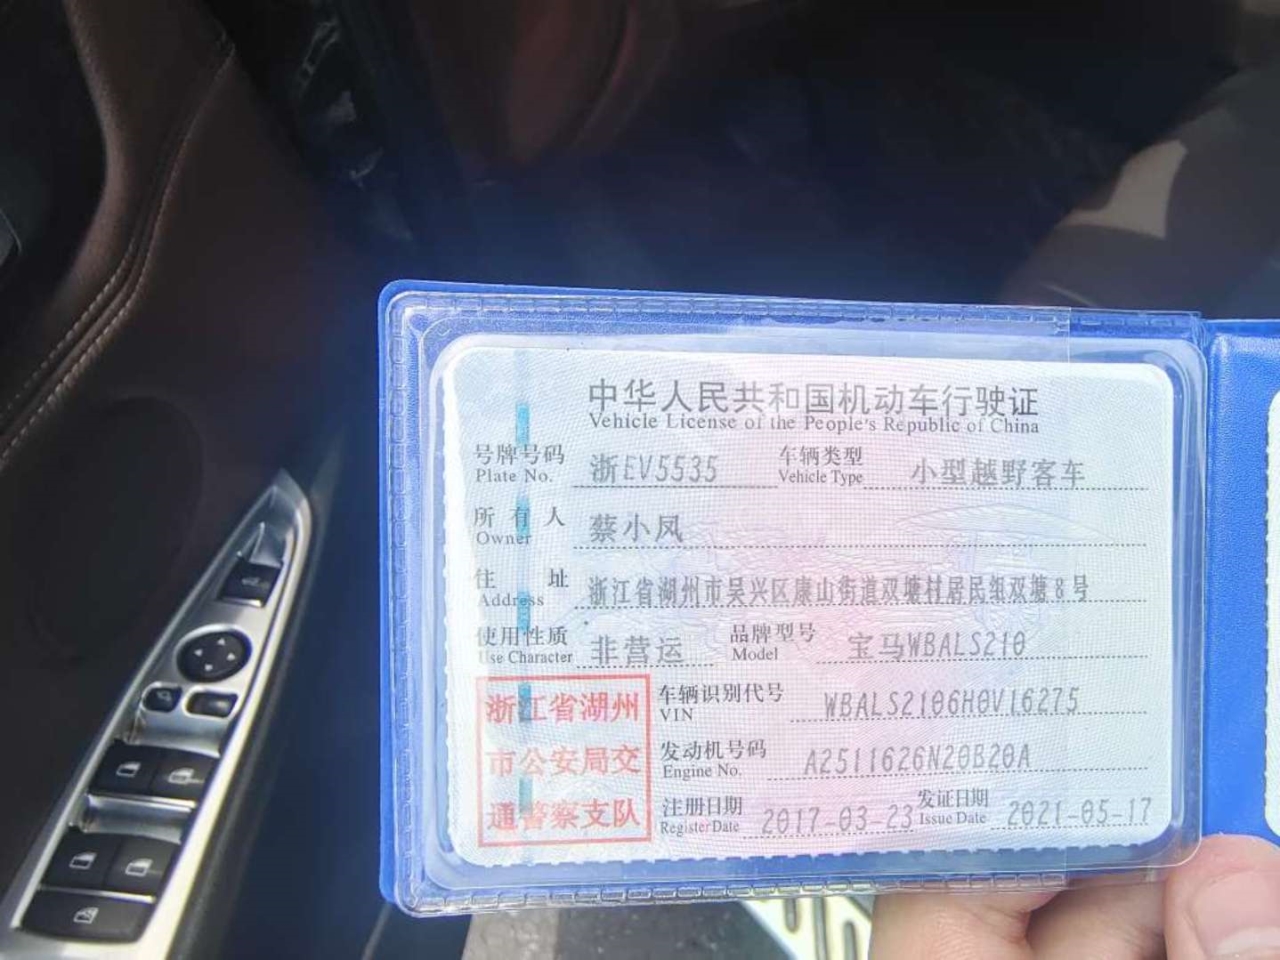 中华人民共和国机动车行驶证
Vehicle License of the People's Republic of China
号牌号码 浙EV5535 车辆类型 小型越野客车
Plate No. Vehicle Type
所有人 蔡小凤
Owner
住址 浙江省湖州市吴兴区康山街道双塘村居民组双塘8号
Address
使用性质 非营运 品牌型号 宝马WBALS210
Use Character Model
浙江省湖州
市公安局交
通警察支队
车辆识别代号 WBALS2106H0V16275
VIN
发动机号码 A2511626N20B20A
Engine No.
注册日期 2017-03-23 发证日期 2021-05-17
Register Date Issue Date